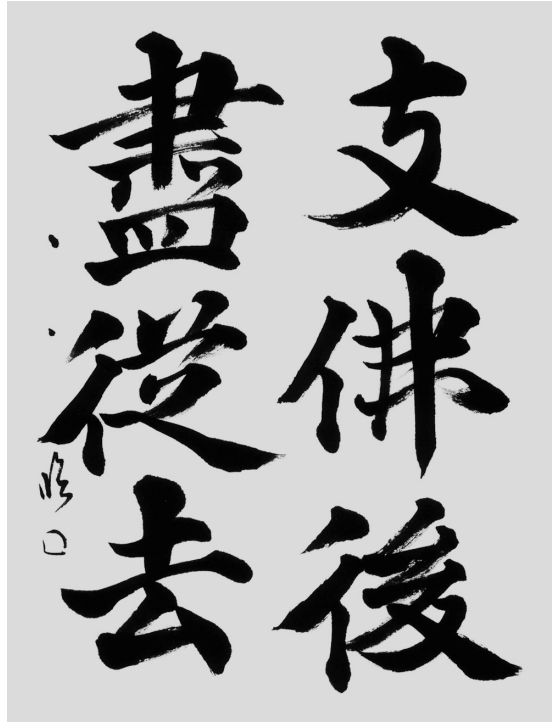 支佛後
盡從去
臨